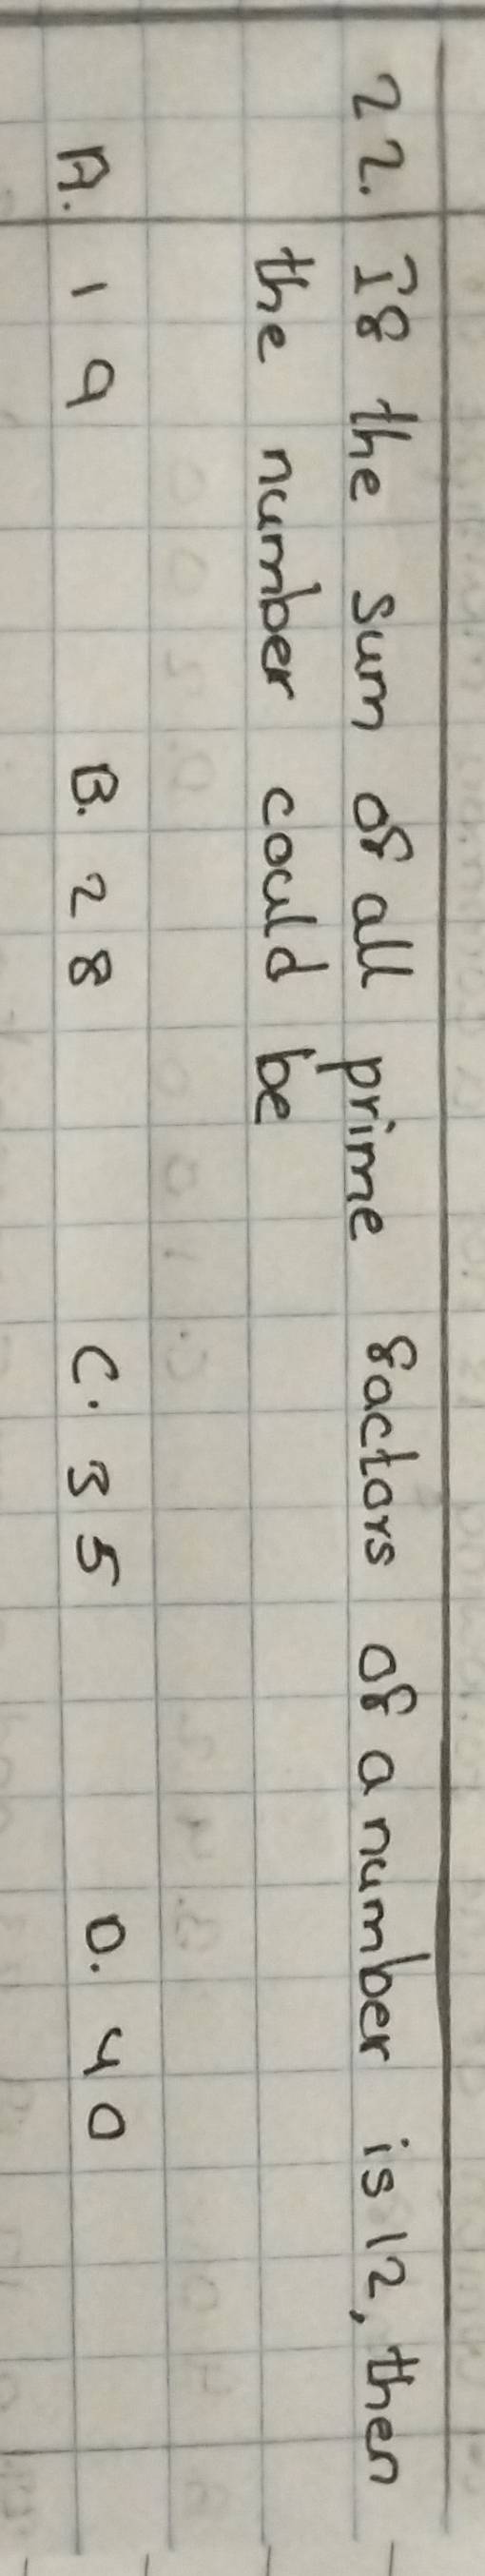 22. If the sum of all prime factors of a number is 12, then
the number could be
A. 19 B. 28 C. 35 D. 40